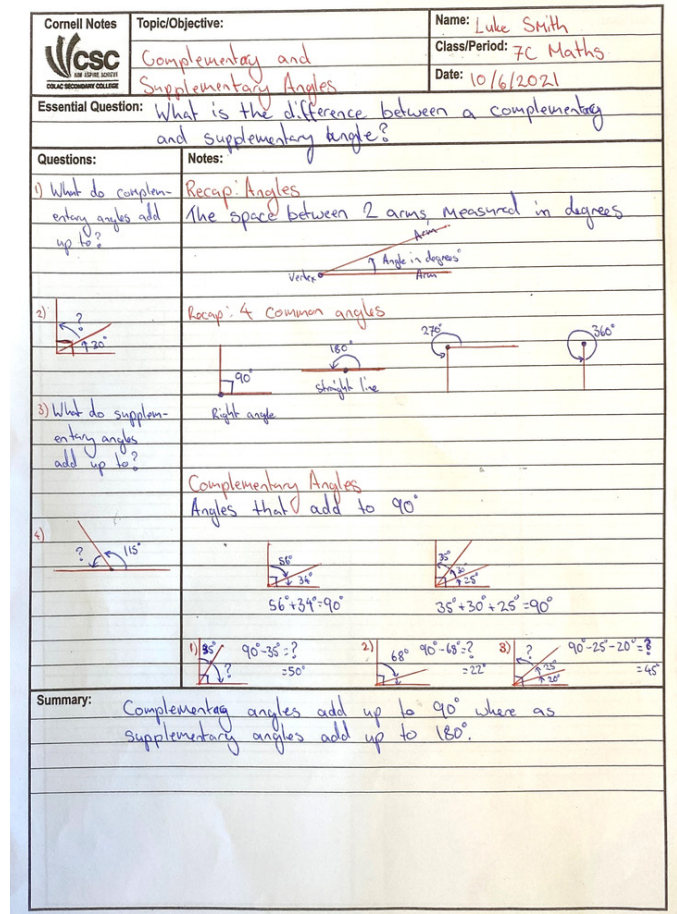 Cornell Notes
CSC
AIM ASPIRE ACHIEVE
COLAC SECONDARY COLLEGE
Topic/Objective:
Complementay and
Supplementary Angles
Name: Luke Smith
Class/Period: 7C Maths
Date: 10/6/2021
Essential Question: What is the difference between a complementary
and supplementary angle?
Questions:
1) What do complem-
entary angles add
up to?
2)
?
20°
3) What do supplem-
entary angles
add up to?
4)
?
115°
Notes:
Recap: Angles
The space between 2 arms, measured in degrees
Arm
Angle in degrees°
Vertex
Arm
Recap: 4 common angles
90°
Right angle
180°
straight line
270°
360°
Complementary Angles
Angles that add to 90°
56°
34°
56°+34°=90°
35°
30°
25°
35°+30°+25°=90°
1) 35° 90°-35°=?
? =50°
2) 68° 90°-68°=?
? =22°
3) ? 90°-25°-20°=?
25° =45°
20°
Summary:
Complementary angles add up to 90° where as
supplementary angles add up to 180°.